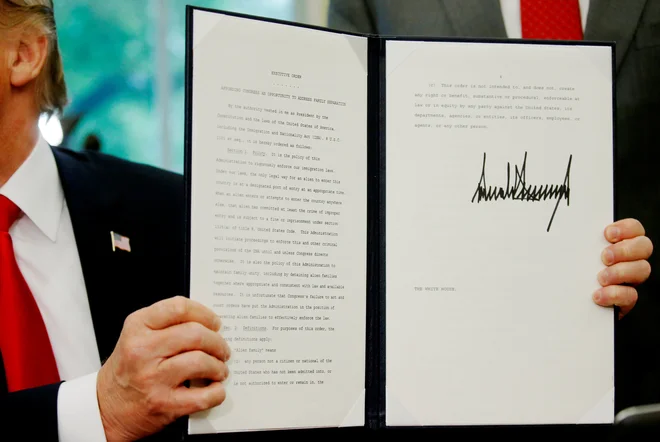 EXECUTIVE ORDER
- - - - - - -
AFFORDING CONGRESS AN OPPORTUNITY TO ADDRESS FAMILY SEPARATION
By the authority vested in me as President by the
Constitution and the laws of the United States of America,
including the Immigration and Nationality Act (INA), 8 U.S.C.
it is hereby ordered as follows:
Section 1. Policy. It is the policy of this
Administration to rigorously enforce our immigration laws.
Under our laws, the only legal way for an alien to enter this
country is at a designated port of entry at an appropriate time.
When an alien enters or attempts to enter the country anywhere
else, that alien has committed at least the crime of improper
entry and is subject to a fine or imprisonment under section
of title 8, United States Code. This Administration
will initiate proceedings to enforce this and other criminal
provisions of the INA until and unless Congress directs
otherwise. It is also the policy of this Administration to
maintain family unity, including by detaining alien families
together where appropriate and consistent with law and available
resources. It is unfortunate that Congress's failure to act and
court orders have put the Administration in the position of
separating alien families to effectively enforce the law.
Sec. 2. Definitions. For purposes of this order, the
following definitions apply:
"Alien family" means
any person not a citizen or national of the
United States who has not been admitted into, or
is not authorized to enter or remain in, the
This order is not intended to, and does not, create
any right or benefit, substantive or procedural, enforceable at
law or in equity by any party against the United States, its
departments, agencies, or entities, its officers, employees, or
agents, or any other person.
THE WHITE HOUSE,